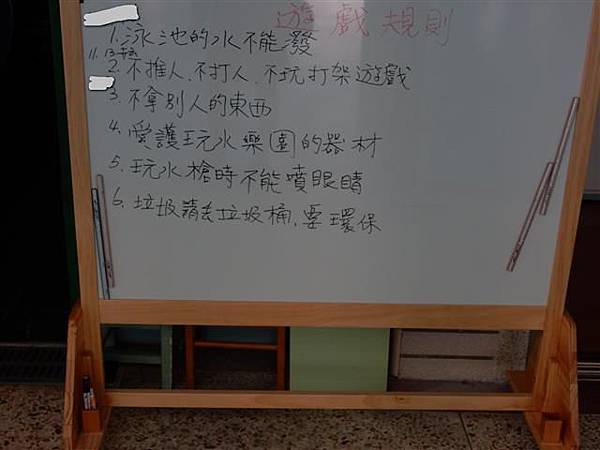 遊戲規則
1. 泳池的水不能潑
2. 不推人、不打人、不玩打架遊戲
3. 不拿別人的東西
4. 愛護玩水樂園的器材
5. 玩水槍時不能噴眼睛
6. 垃圾請丟垃圾桶,要環保